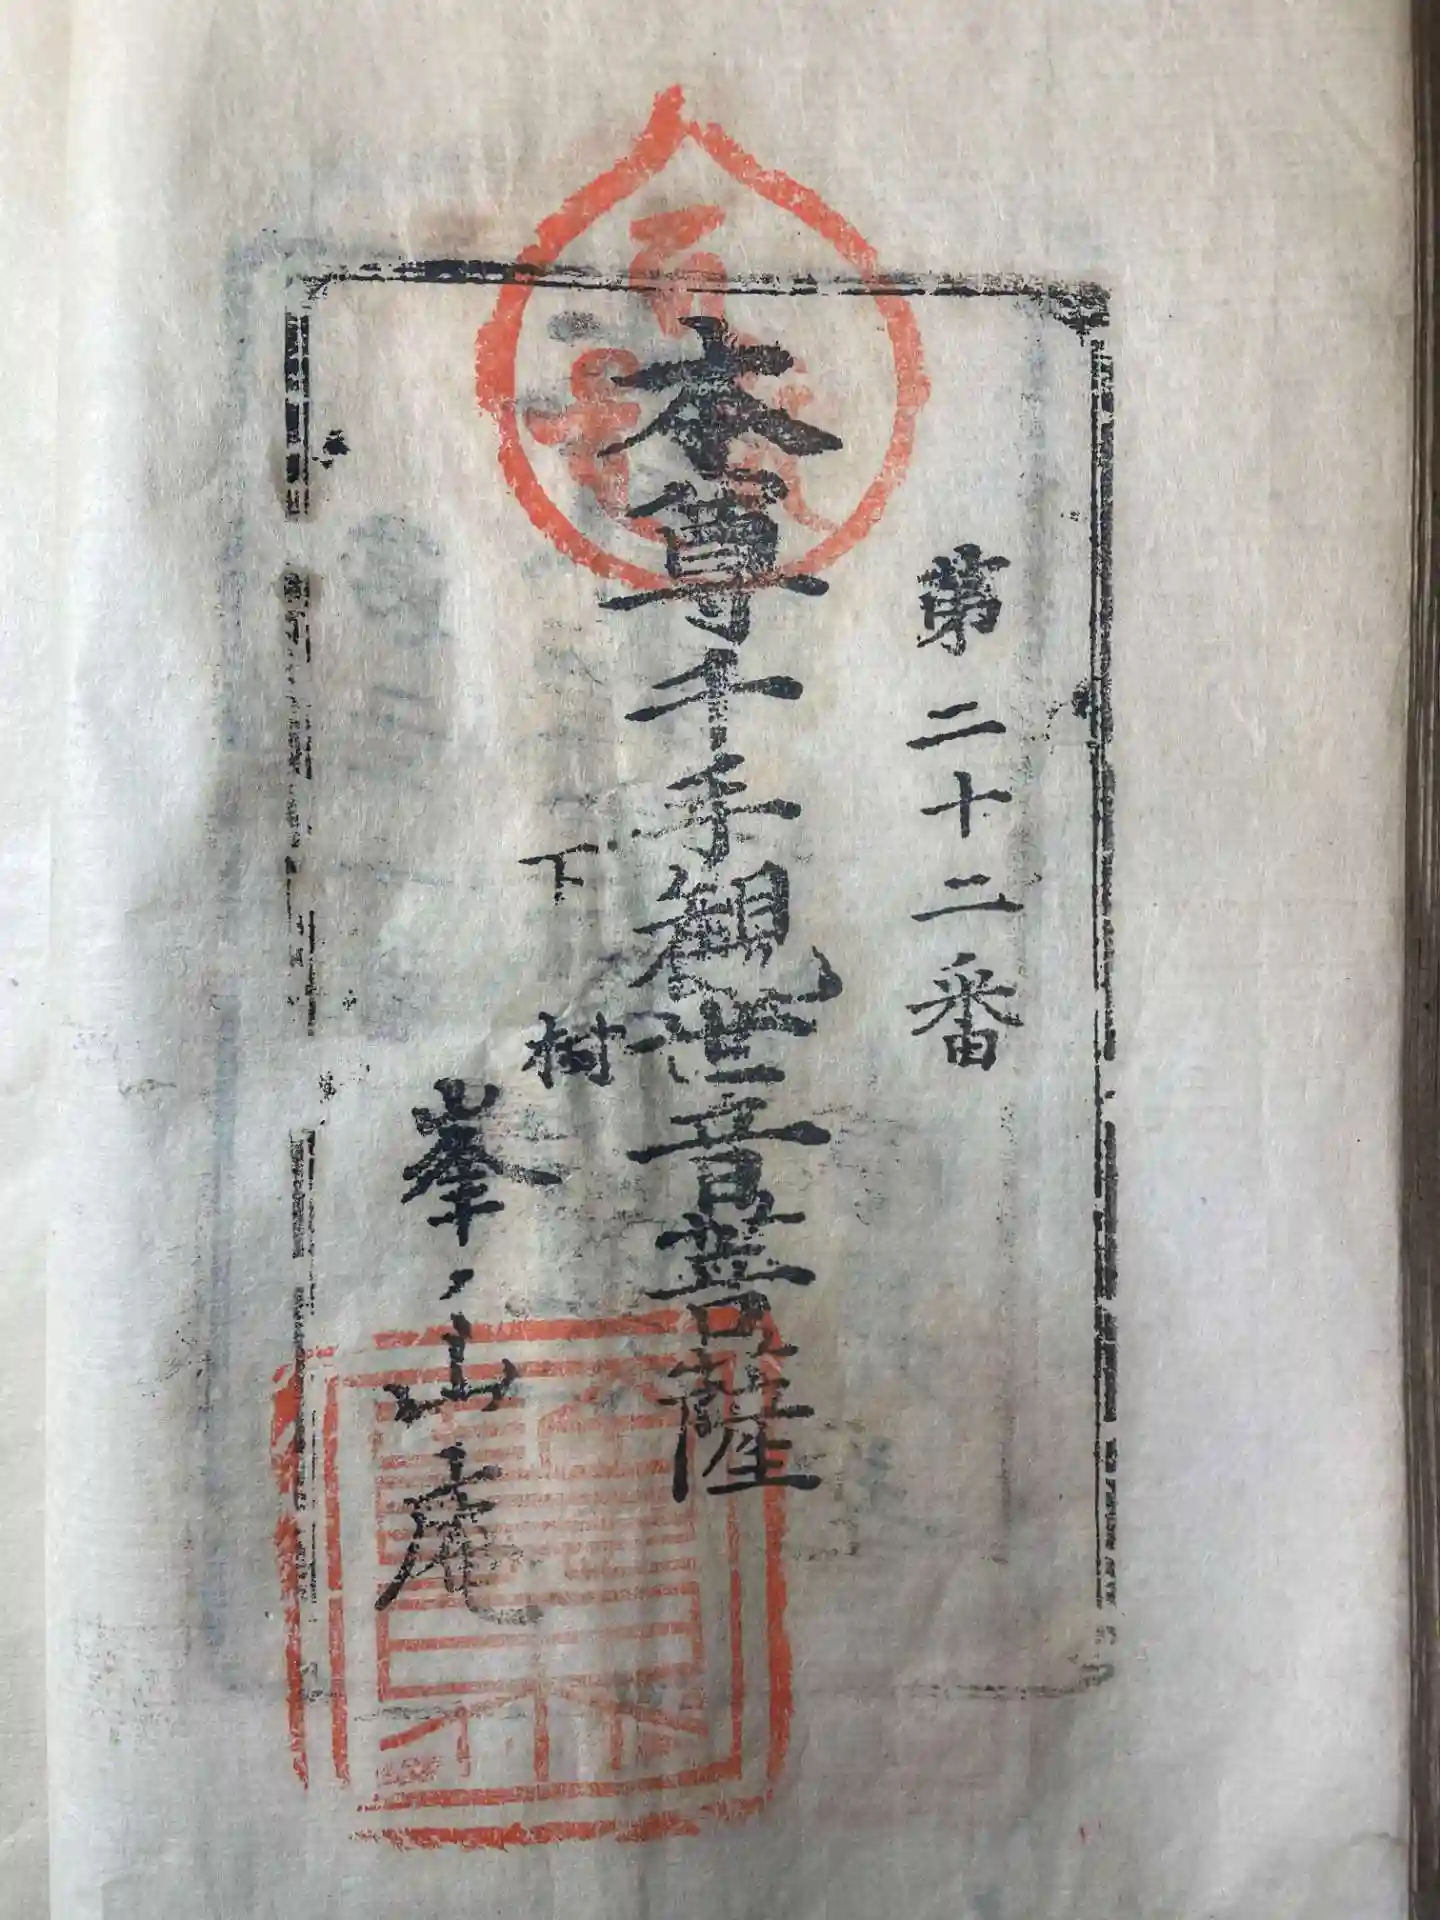 第二十二番
本尊千手観世音菩薩
下樹
峯ノ山庵